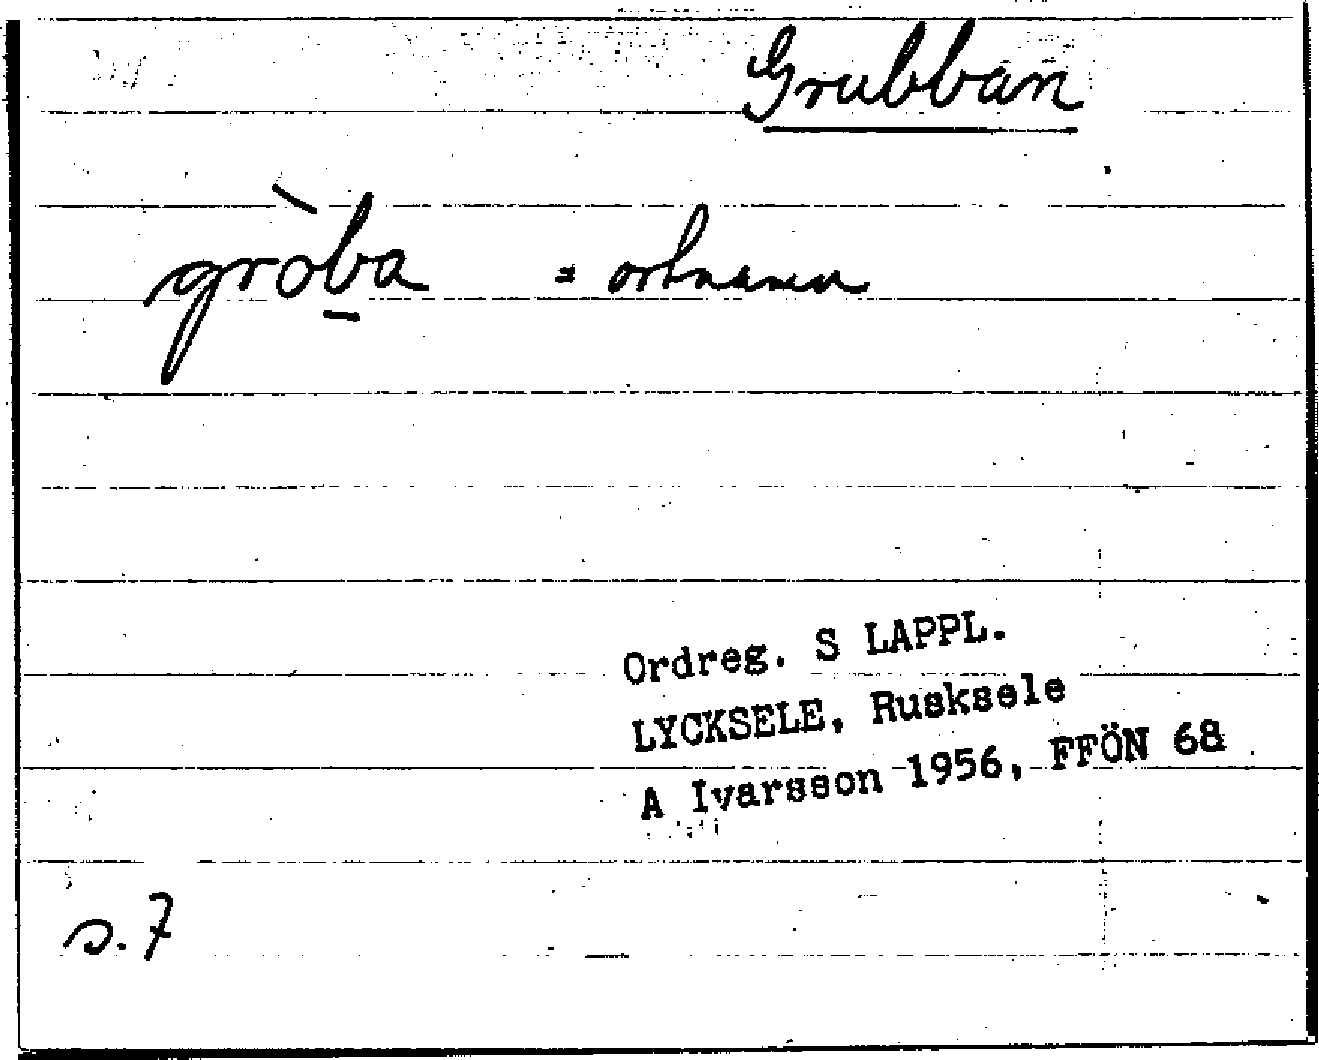 Grubban
gròb̲a = ortnamn
Ordreg. S LAPPL.
LYCKSELE, Rusksele
A Ivarsson 1956, FFÖN 68
s. 7